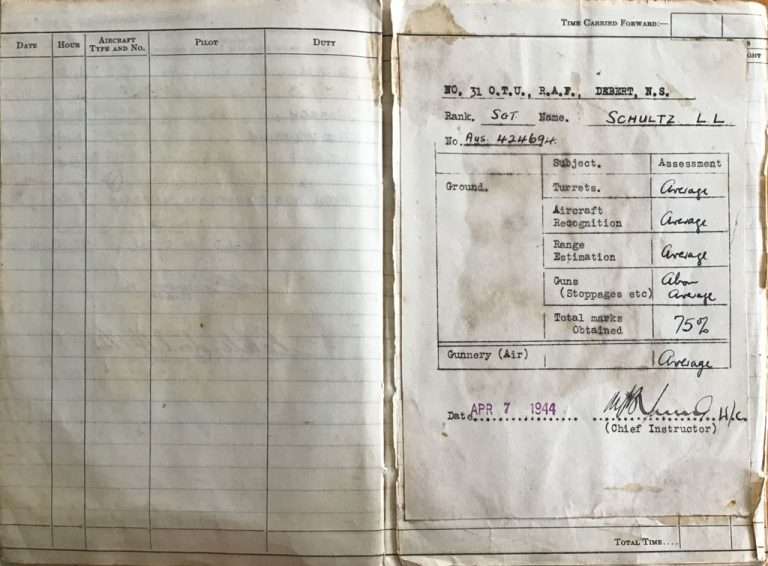 DATE HOUR AIRCRAFT TYPE AND NO. PILOT DUTY
TIME CARRIED FORWARD:—
NO. 31 O.T.U., R.A.F., DEBERT, N.S.
Rank. SGT. Name. SCHULTZ L L
No. Aus. 424694.
Subject. Assessment
Ground. Turrets. Average
Aircraft Recognition Average
Range Estimation Average
Guns (Stoppages etc) Above Average
Total marks Obtained 75%
Gunnery (Air) Average
Date APR 7 1944
(Chief Instructor)
TOTAL TIME....